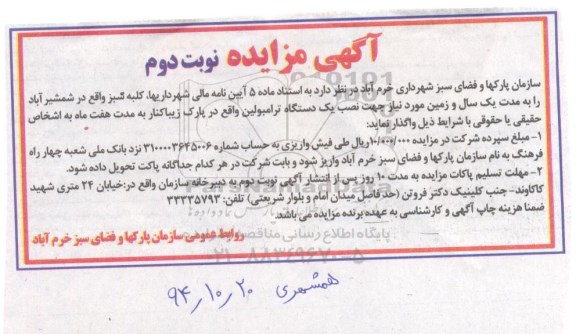 آگهی مزایده نوبت دوم
سازمان پارکها و فضای سبز شهرداری خرم آباد در نظر دارد به استناد ماده ۵ آیین نامه مالی شهرداریها، کلبه سبز واقع در شمشیر آباد
را به مدت یک سال و زمین مورد نیاز جهت نصب یک دستگاه ترامبولین واقع در پارک زیباکنار به مدت هفت ماه به اشخاص
حقیقی یا حقوقی با شرایط ذیل واگذار نماید:
۱- مبلغ سپرده شرکت در مزایده ۱۰/۰۰۰/۰۰۰ریال طی فیش واریزی به حساب شماره ۳۱۰۰۰۰۳۶۴۵۰۰۶ نزد بانک ملی شعبه چهار راه
فرهنگ به نام سازمان پارکها و فضای سبز خرم آباد واریز شود و بابت شرکت در هر کدام جداگانه پاکت تحویل داده شود.
۲- مهلت تسلیم پاکات مزایده به مدت ۱۰ روز پس از انتشار آگهی نوبت دوم به دبیرخانه سازمان واقع در:خیابان ۲۴ متری شهید
کاکاوند- جنب کلینیک دکتر فروتن (حدفاصل میدان امام و بلوار شریعتی) تلفن: ۳۳۳۳۵۷۹۳
ضمنا هزینه چاپ آگهی و کارشناسی به عهده برنده مزایده می باشد.
پایگاه اطلاع رسانی مناقصه
روابط عمومی سازمان پارکها و فضای سبز خرم آباد
۰۲۱-۸۸۳۴۹۶۷۰-۵
همشهری ۹۴,۱۰,۲۰